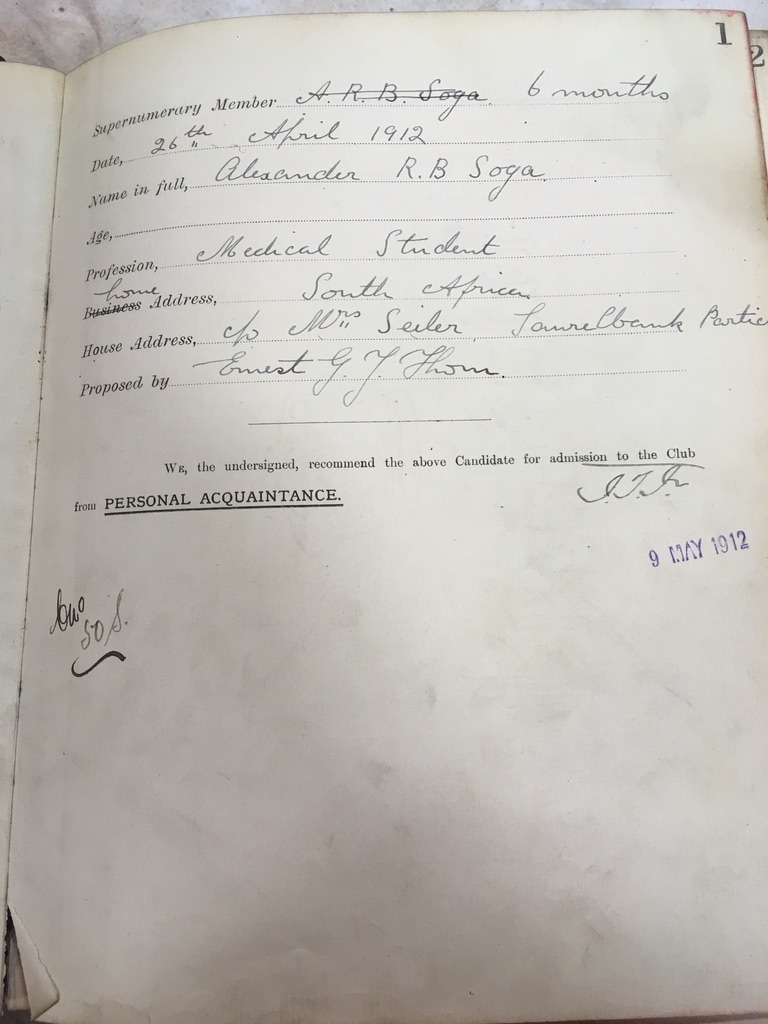 1
2
Supernumerary Member A. R. B. Soga 6 months
Date, 26th April 1912
Name in full, Alexander R.B Soga
Age,
Profession, Medical Student
home
Business Address, South Africa
House Address, c/o Mrs Seiler, Laurelbank Partic
Proposed by Ernest G. J. Thom.
WE, the undersigned, recommend the above Candidate for admission to the Club
from PERSONAL ACQUAINTANCE.
9 MAY 1912
50